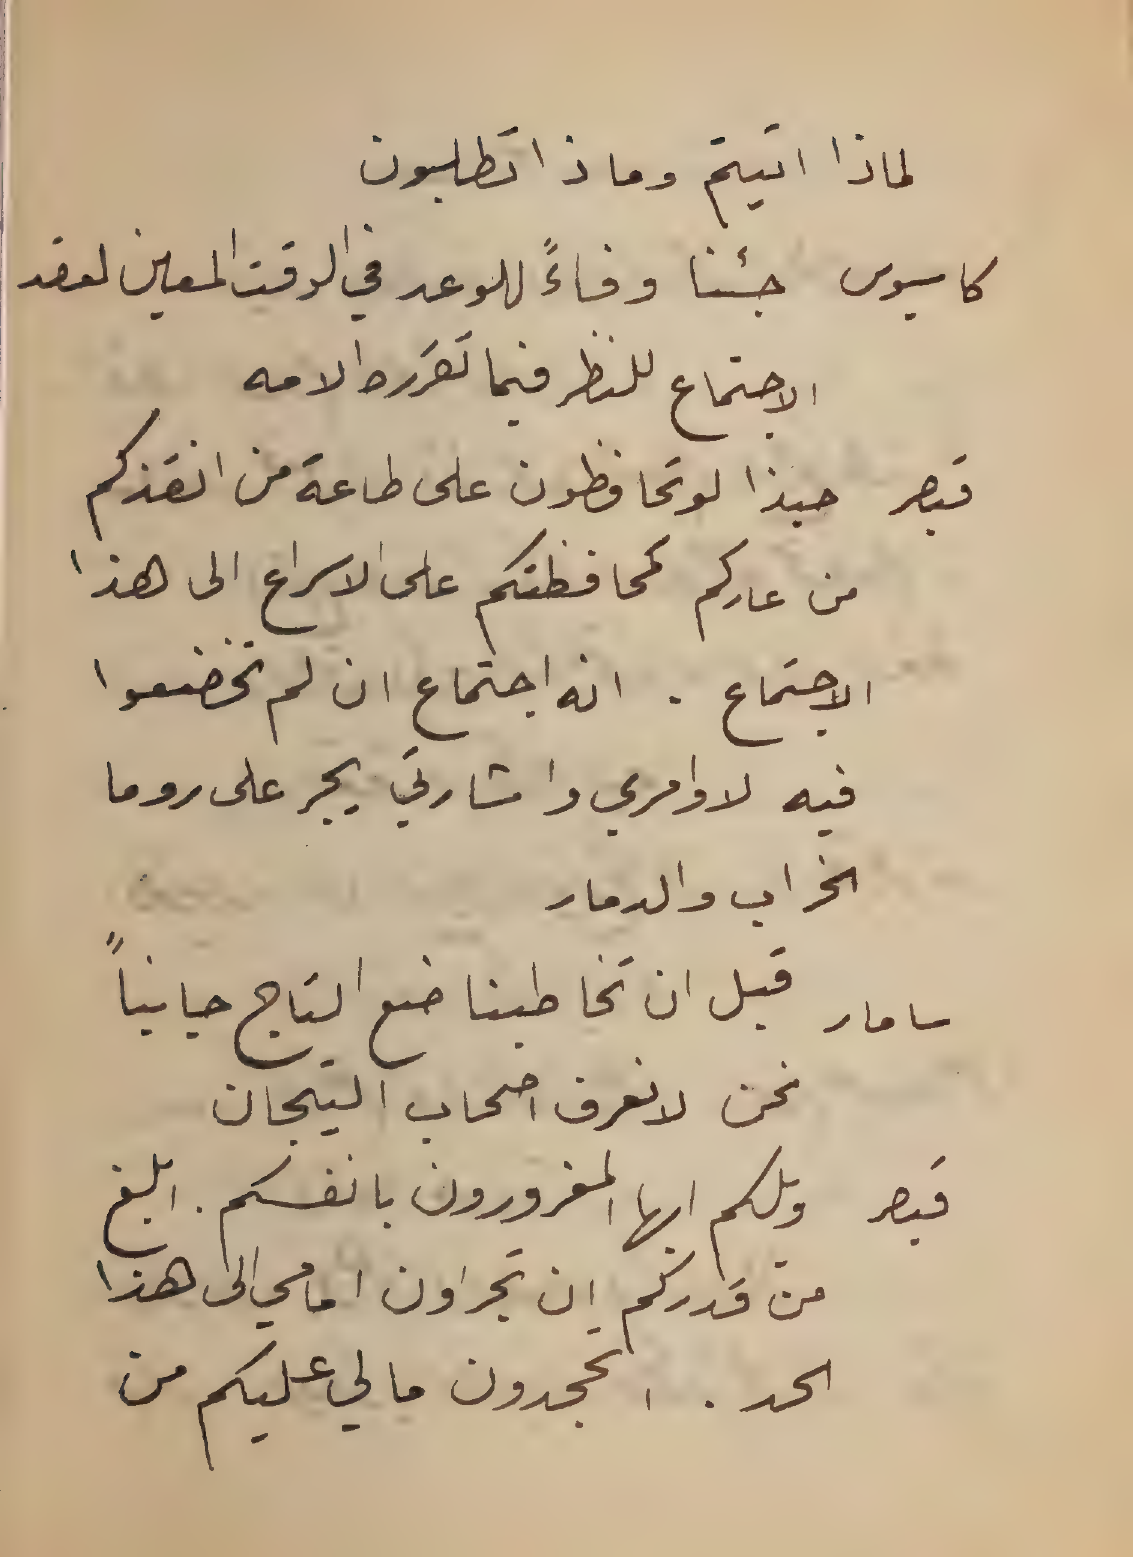 لماذا اتيتم وماذا تطلبون
كاسيوس جئنا وفاءً للوعد في الوقت المعين لعقد
الاجتماع للنظر فيما تقرره الامه
قيصر حبذا لو تحافظون على طاعة من انقذكم
من عاركم كمحافظتكم على الاسراع الى هذا
الاجتماع . انه اجتماع ان لم تخضعوا
فيه لاوامري واشارتي يجر على روما
الخراب والدمار
سامار قبل ان تخاطبنا ضع التاج جانباً
نحن لا نعرف اصحاب التيجان
قيصر ويلكم ايها المغرورون بانفسكم . ابلغ
من قدركم ان تجراون امامي الى هذا
الحد . اتجحدون مالي عليكم من